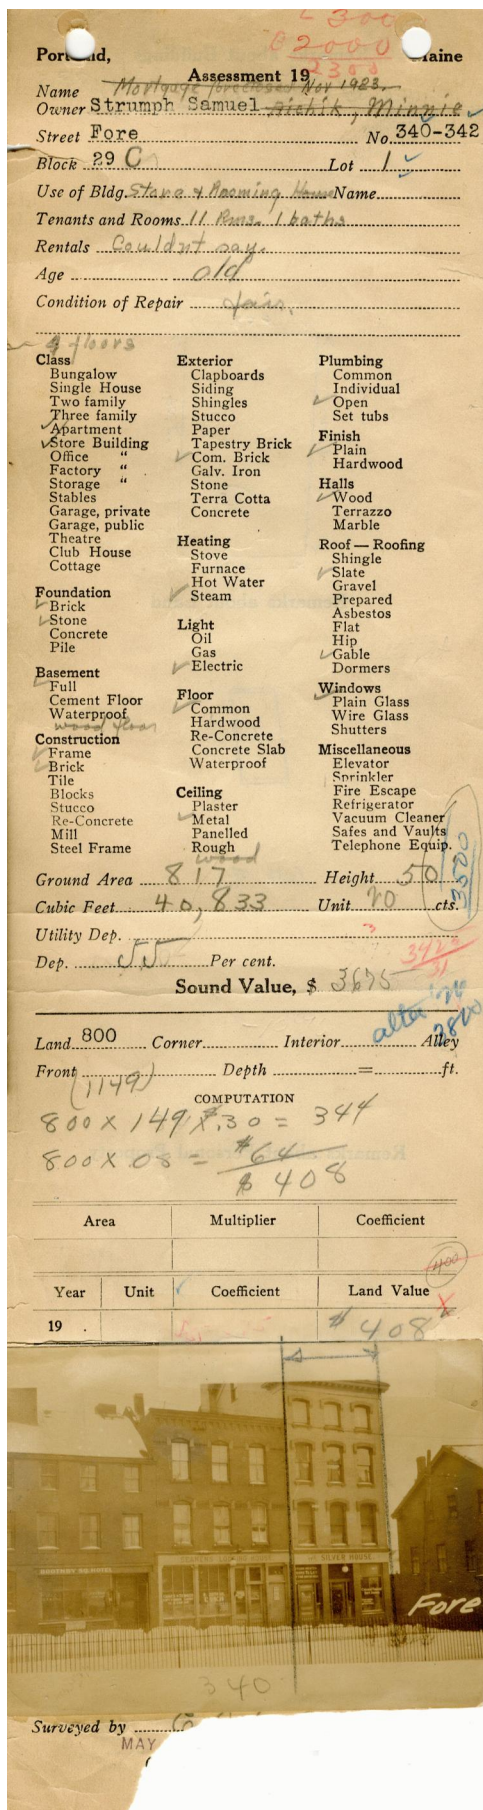 L 300
B 2000
2300
Portland, Maine
Assessment 19
Mortgage foreclosed Nov 1923.
Name
Owner Strumph Samuel Minnie
Street Fore No. 340-342
Block 29 C Lot 1
Use of Bldg. Store & Rooming House Name
Tenants and Rooms 11 Rms. 1 baths
Rentals Couldnt say.
Age old
Condition of Repair fair.
4 floors
Class
Bungalow
Single House
Two family
Three family
Apartment
Store Building
Office "
Factory "
Storage "
Stables
Garage, private
Garage, public
Theatre
Club House
Cottage
Foundation
Brick
Stone
Concrete
Pile
Basement
Full
Cement Floor
Waterproof
wood floor
Construction
Frame
Brick
Tile
Blocks
Stucco
Re-Concrete
Mill
Steel Frame
Exterior
Clapboards
Siding
Shingles
Stucco
Paper
Tapestry Brick
Com. Brick
Galv. Iron
Stone
Terra Cotta
Concrete
Heating
Stove
Furnace
Hot Water
Steam
Light
Oil
Gas
Electric
Floor
Common
Hardwood
Re-Concrete
Concrete Slab
Waterproof
Ceiling
Plaster
Metal
Panelled
Rough
wood
Plumbing
Common
Individual
Open
Set tubs
Finish
Plain
Hardwood
Halls
Wood
Terrazzo
Marble
Roof — Roofing
Shingle
Slate
Gravel
Prepared
Asbestos
Flat
Hip
Gable
Dormers
Windows
Plain Glass
Wire Glass
Shutters
Miscellaneous
Elevator
Sprinkler
Fire Escape
Refrigerator
Vacuum Cleaner
Safes and Vaults
Telephone Equip.
3500
Ground Area 817 Height 50
Cubic Feet 40,833 Unit 20 cts.
Utility Dep.
Dep. 55 Per cent.
Sound Value, $ 3675
Land 800 Corner Interior Alley
Front Depth = ft.
(1149)
COMPUTATION
800 X 149 X .30 = 344
800 X .08 = $64
$ 408
Area Multiplier Coefficient
400
Year Unit Coefficient Land Value
19 $ 408
SILVER HOUSE
Fore
340
Surveyed by
MAY